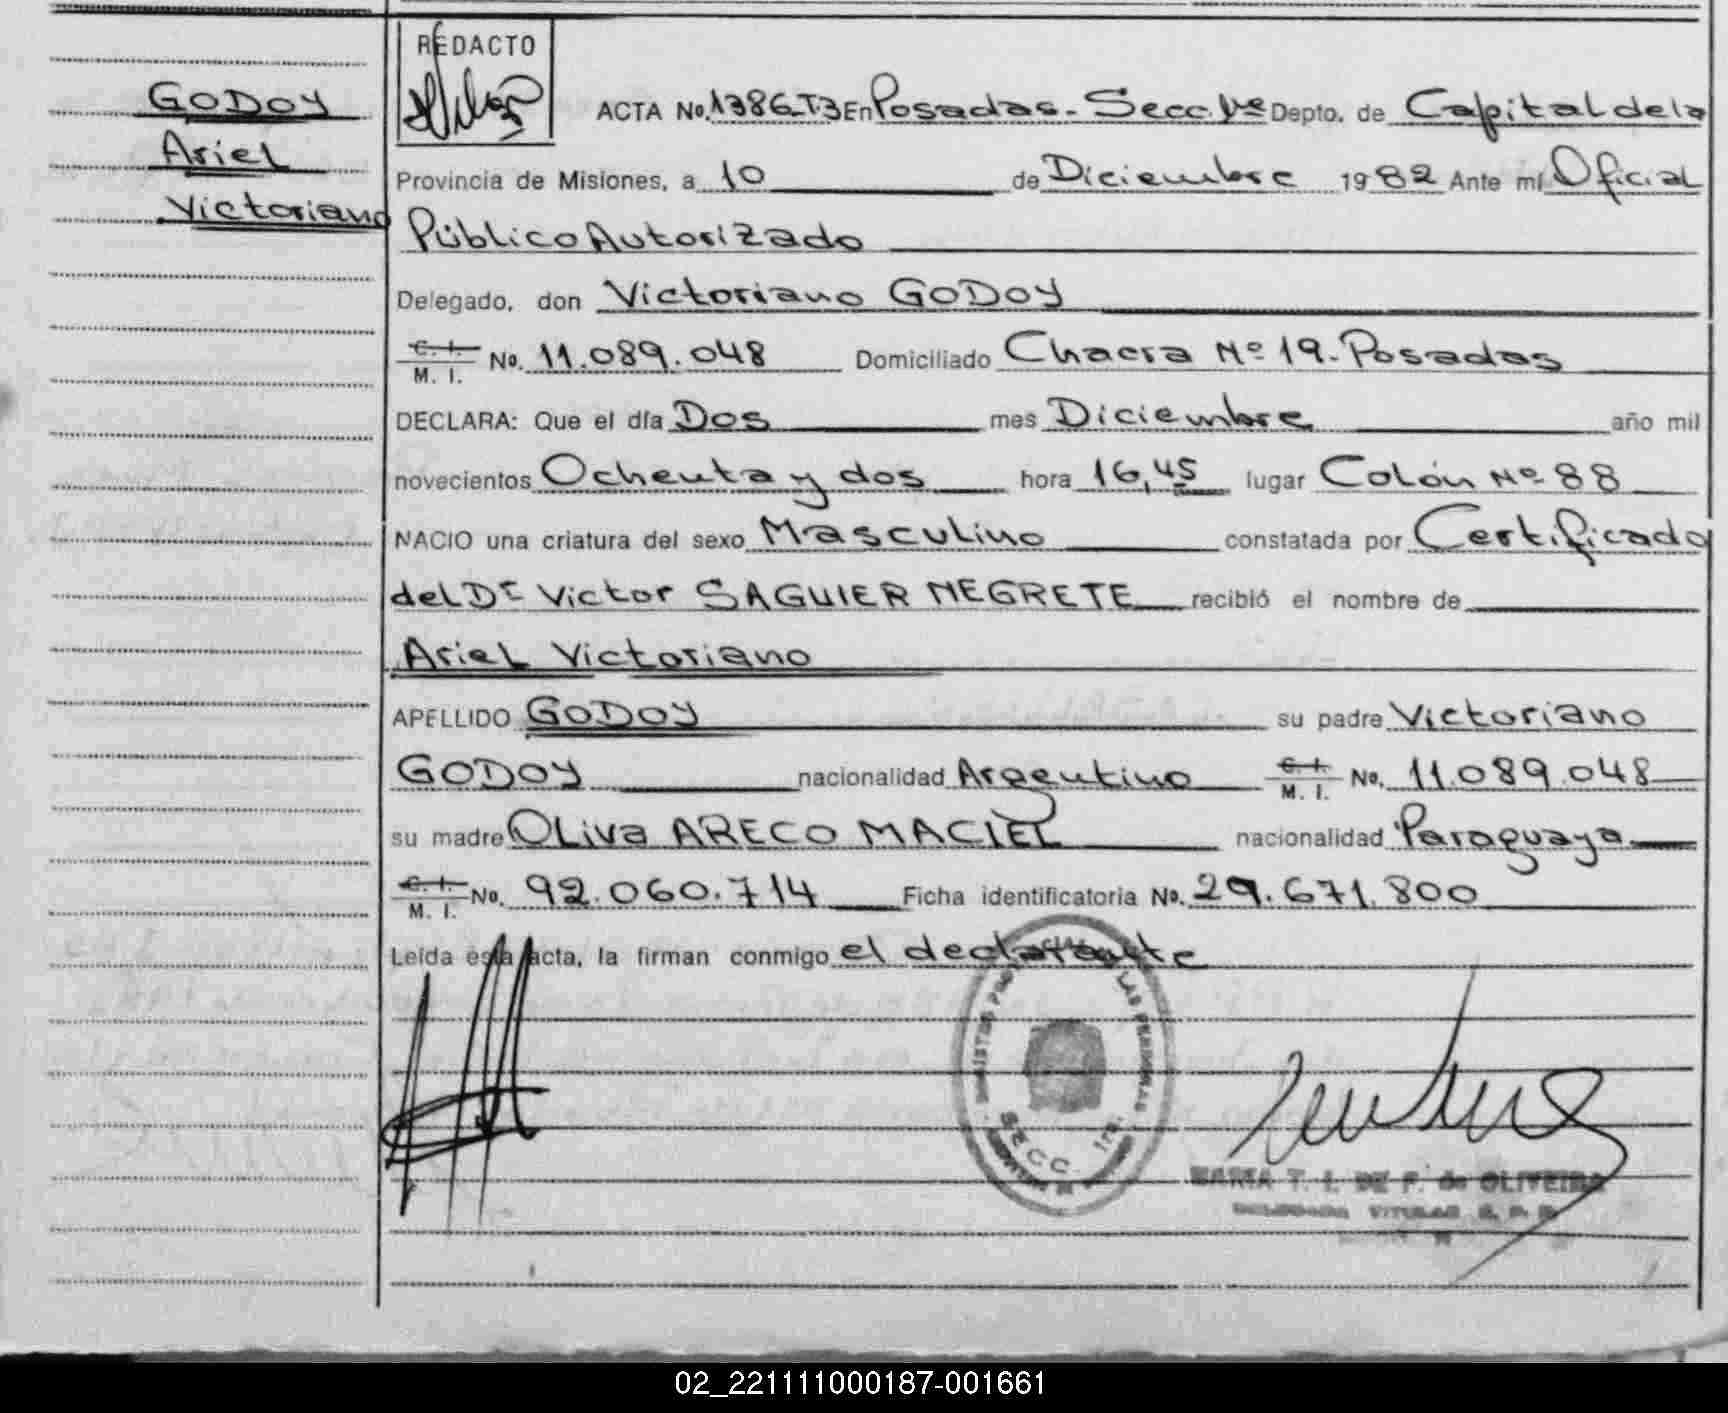 GODOY
Ariel
Victoriano
REDACTO
ACTA No. 1386-T3 En Posadas - Secc. 1ra Depto. de Capital de la
Provincia de Misiones, a 10 de Diciembre 1982 Ante mí Oficial
Público Autorizado
Delegado, don Victoriano GODOY
C. I. M. I. No. 11.089.048 Domiciliado Chacra Nº 19. Posadas
DECLARA: Que el día Dos mes Diciembre año mil
novecientos Ochenta y dos hora 16,45 lugar Colón Nº 88
NACIO una criatura del sexo Masculino constatada por Certificado
del Dr Victor SAGUIER NEGRETE recibió el nombre de
Ariel Victoriano
APELLIDO GODOY su padre Victoriano
GODOY nacionalidad Argentino C. I. M. I. No. 11.089.048
su madre Oliva ARECO MACIEL nacionalidad Paraguaya
C. I. M. I. No. 92.060.714 Ficha identificatoria No. 29.671.800
Leída esta acta, la firman conmigo el declarante
LAS PERSONAS
SECC. 1ra.
MARIA T. I. DE F. de OLIVEIRA
DELEGADA TITULAR
02_221111000187-001661